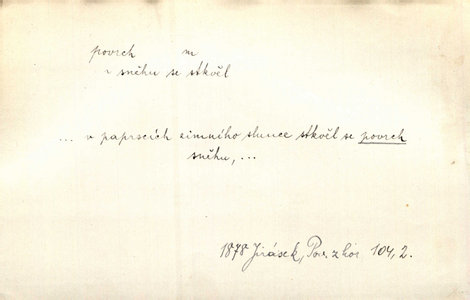 povrch m
~ sněhu se stkvěl
... v paprscích zimního slunce stkvěl se povrch
sněhu, ...
1878 Jirásek, Pov. z hor 104, 2.